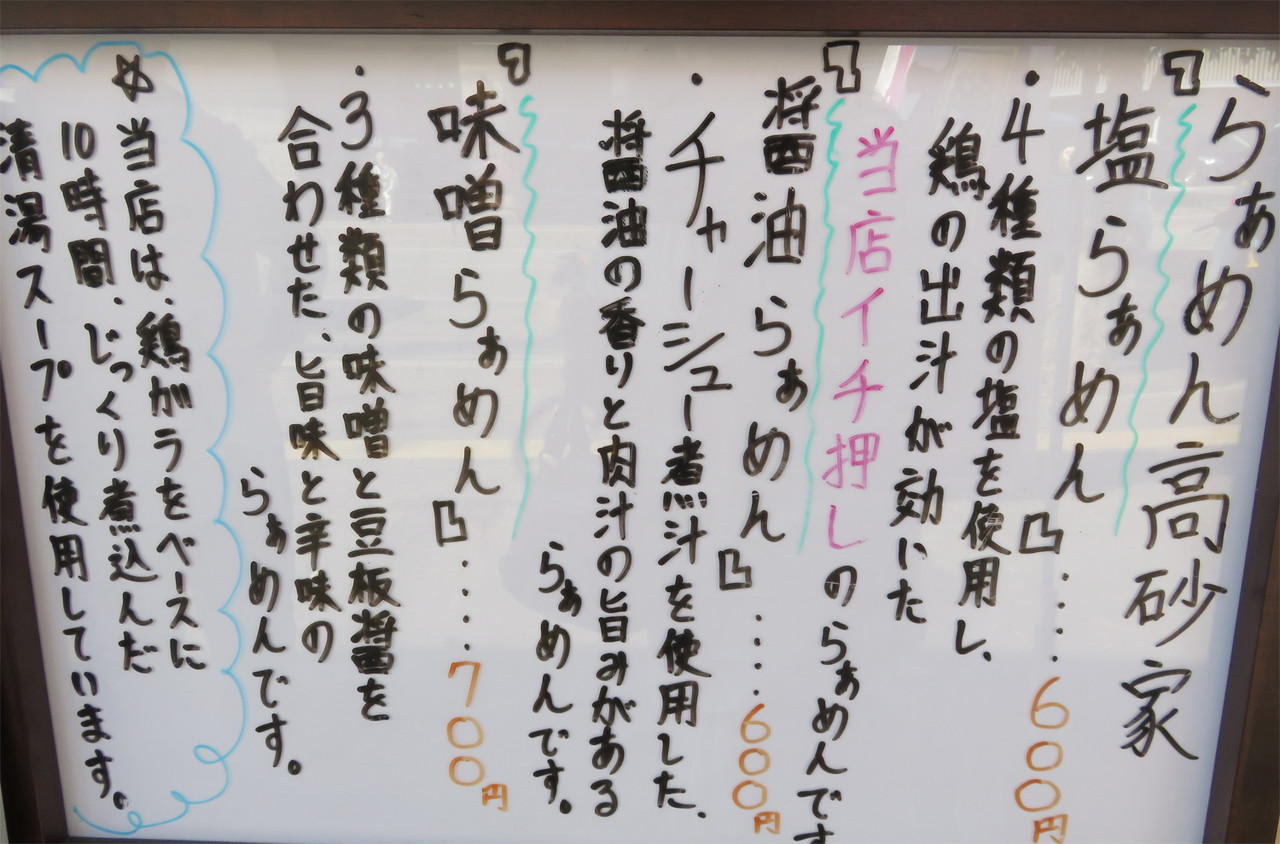 らぁめん高砂家
『塩らぁめん』・・・・・600円
・4種類の塩を使用し、
鶏の出汁が効いた
当店イチ押しのらぁめんです
『醤油らぁめん』・・・・600円
・チャーシュー煮汁を使用した、
醤油の香りと肉汁の旨みがある
らぁめんです。
『味噌らぁめん』・・・・・700円
・3種類の味噌と豆板醤を
合わせた、旨味と辛味の
らぁめんです。
当店は、鶏ガラをベースに
10時間、じっくり煮込んだ
清湯スープを使用しています。